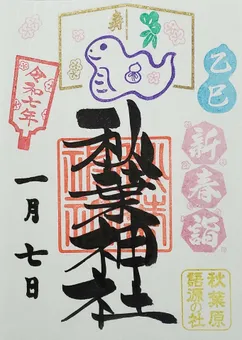 乙巳
新春詣
秋葉神社
令和七年
一月七日
秋葉原
語源の社